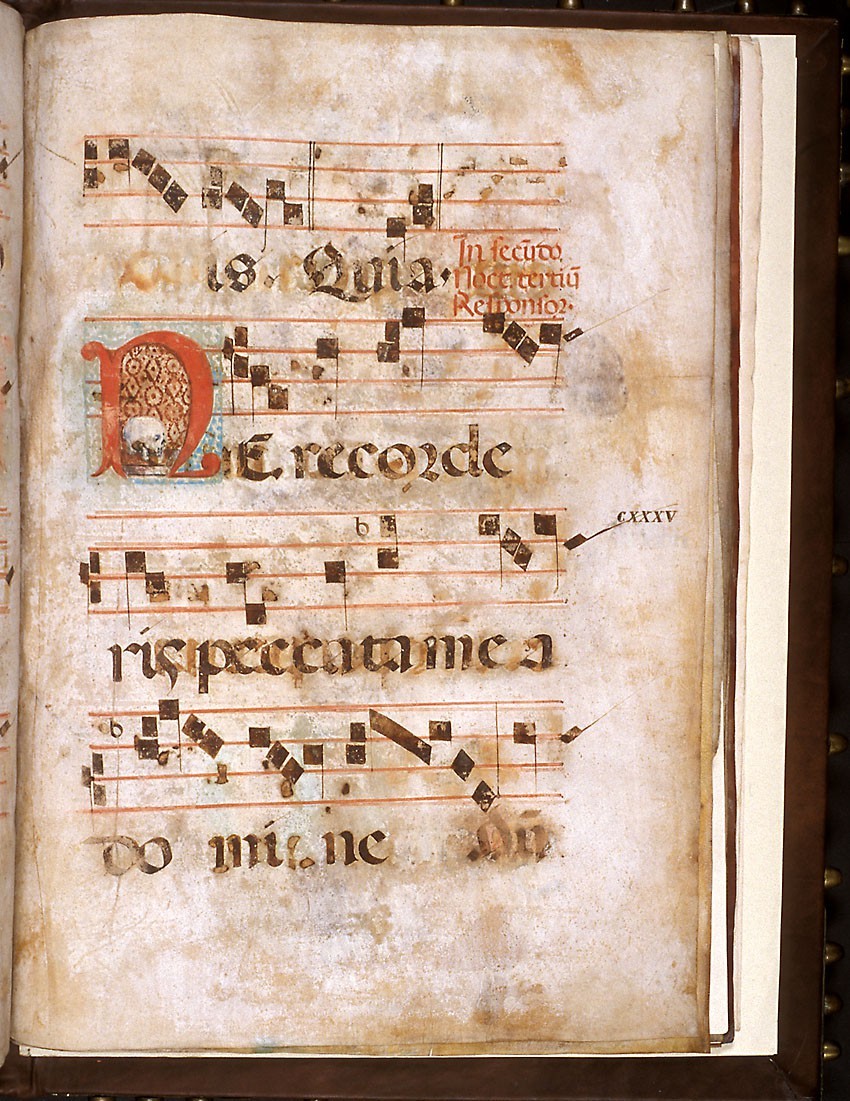 is. Quia.
In secūdo
Noct tertiū
Responsor.
NE recorde
CXXXV
ris peccata mea
do mi ne Dū